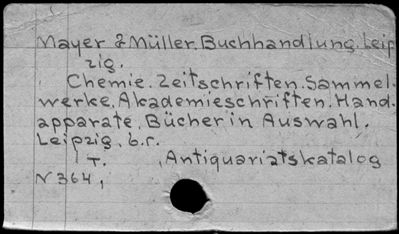 Mayer & Müller. Buchhandlung. Leip
zig.
Chemie. Zeitschriften. Sammel-
werke. Akademieschriften. Hand-
apparate. Bücher in Auswahl.
Leipzig, b.r.
T. , Antiquariatskatalog
N 364,